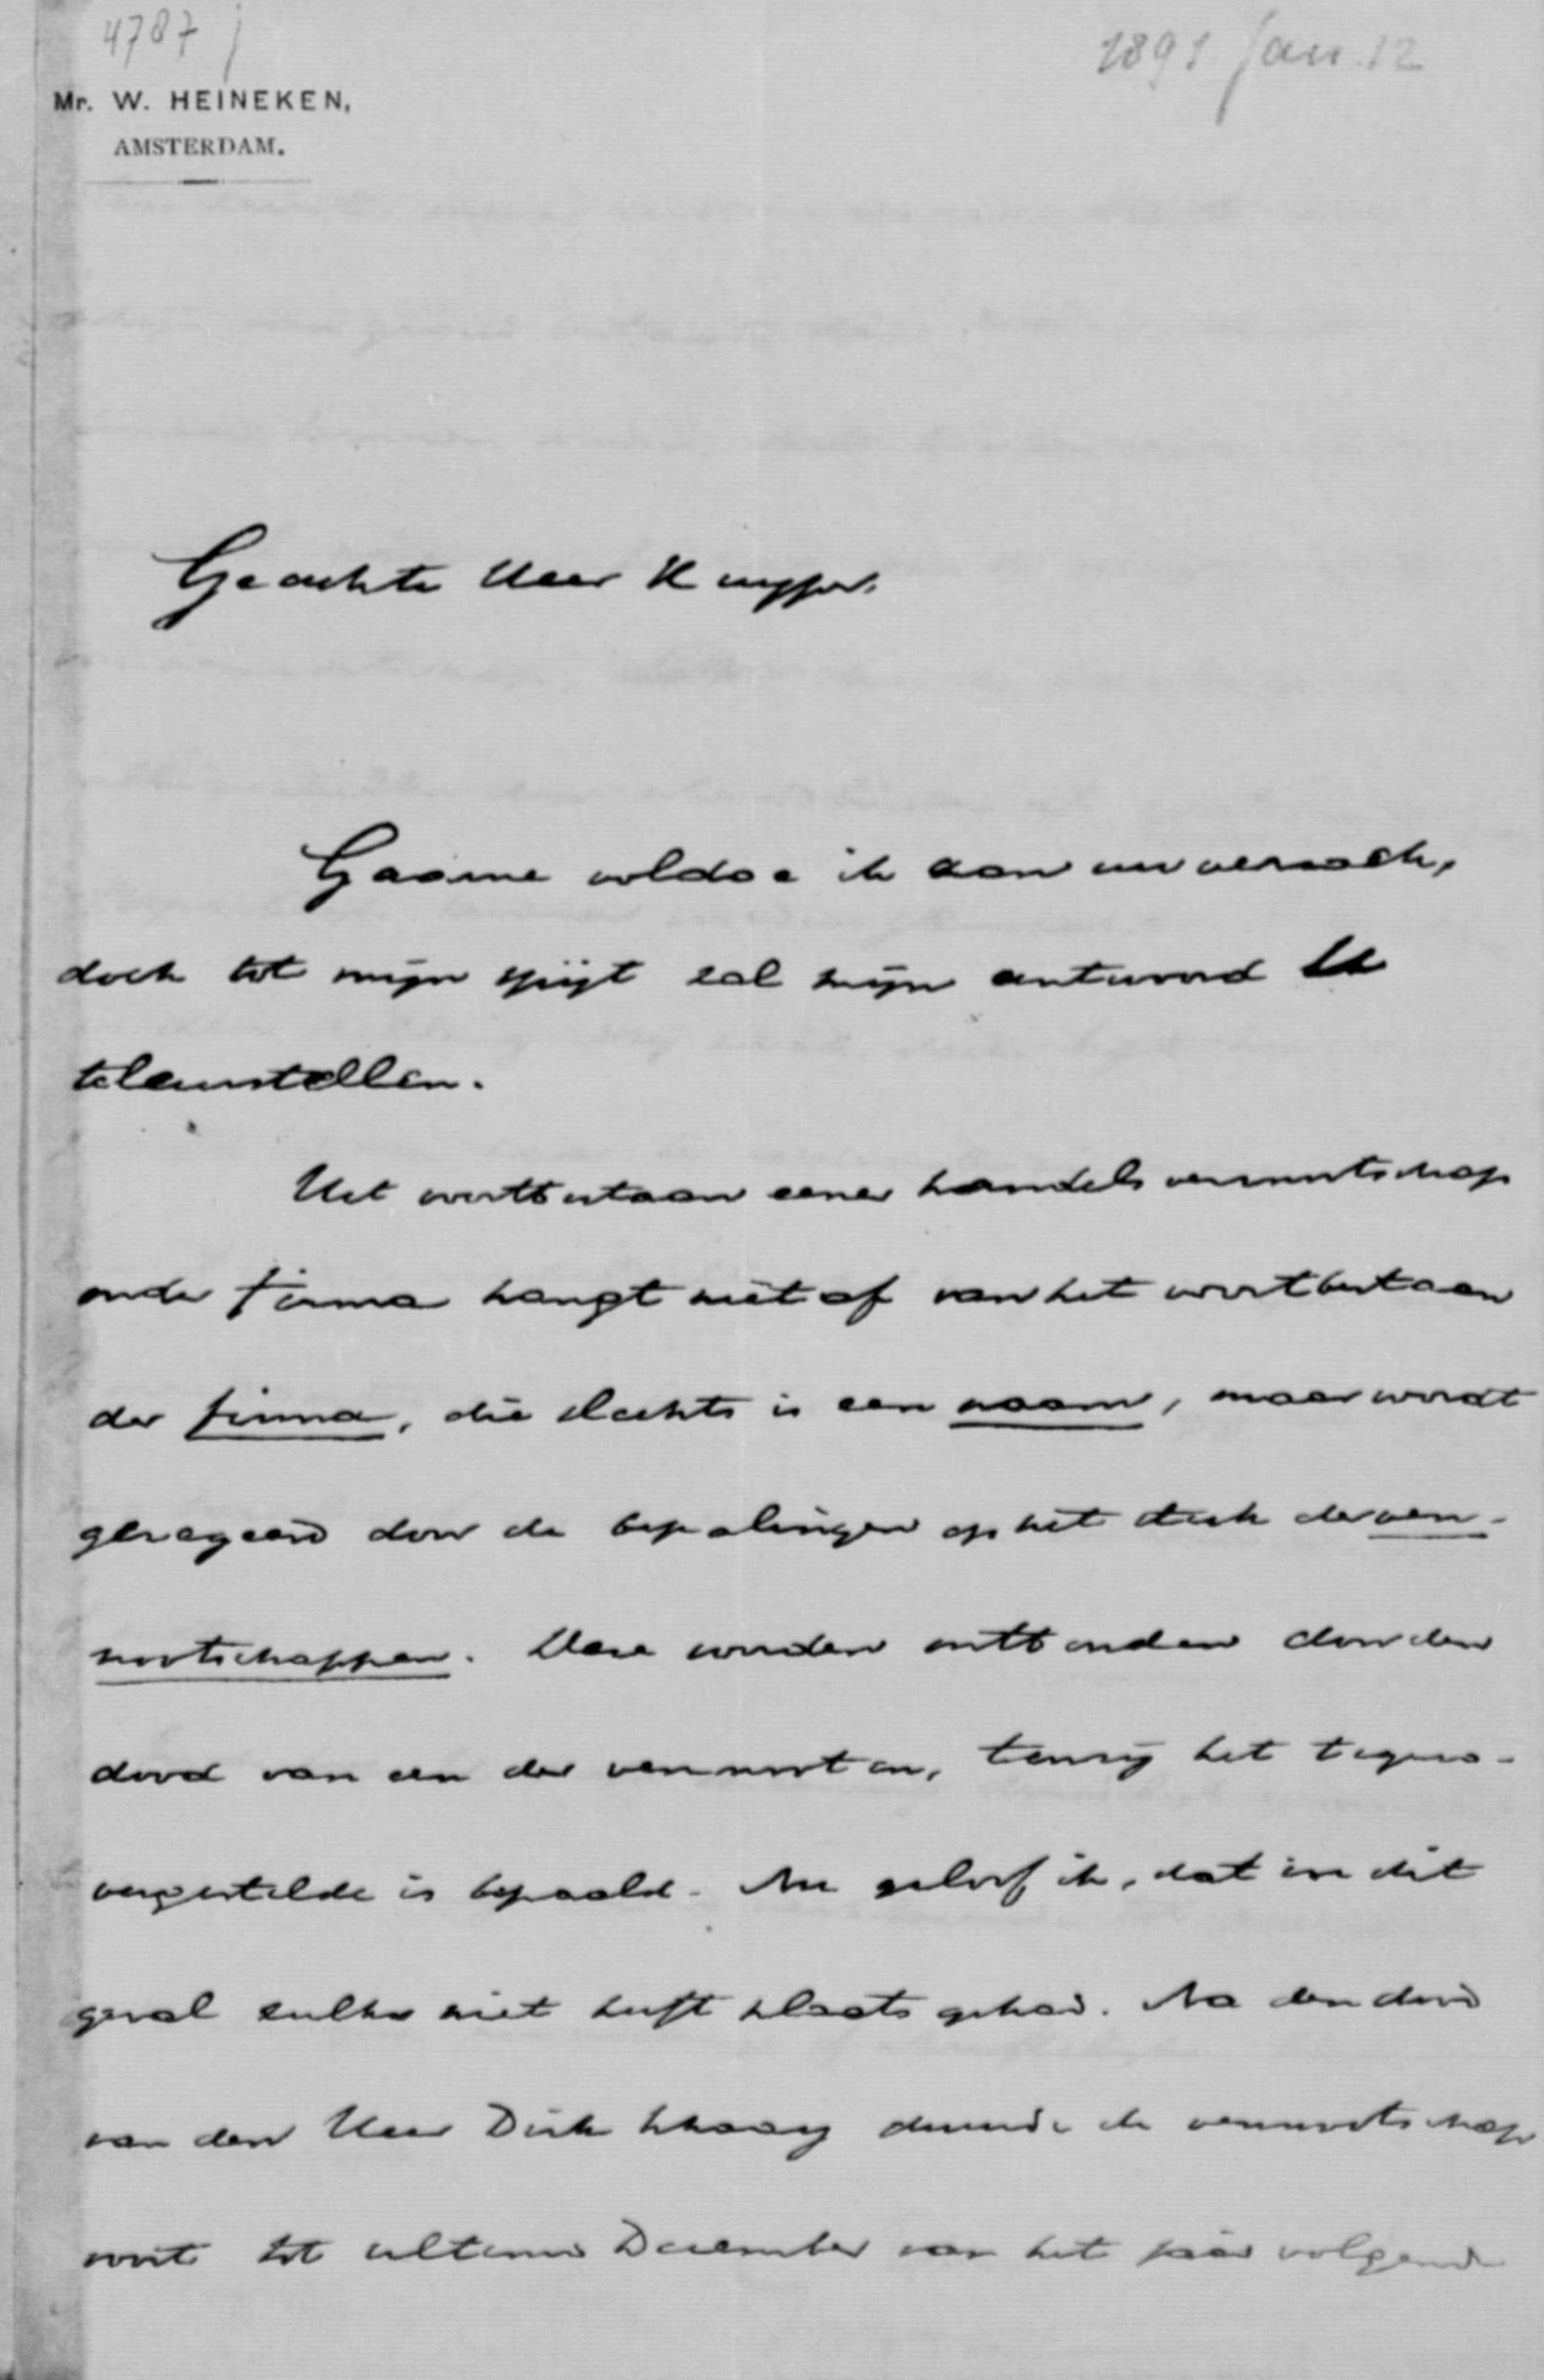 4787
1891 Jan. 12
Mr. W. HEINEKEN,
AMSTERDAM.
Geachte Heer Kuyper.
Gaarne voldoe ik aan uw verzoek,
doch tot mijn spijt zal mijn antwoord U
teleurstellen.
Het voortbestaan eener handelsvennootschap
onder firma hangt niet af van het voortbestaan
der firma, die slechts is een naam, maar wordt
geregeerd door de bepalingen op het stuk der ven-
nootschappen. Deze worden ontbonden door den
dood van een der vennooten, tenzij het tegen-
overgestelde is bepaald. Nu geloof ik, dat in dit
geval zulks niet heeft plaats gehad. Na den dood
van den Heer Dirk duurde de vennootschap
voort tot ultimo December van het jaar volgende